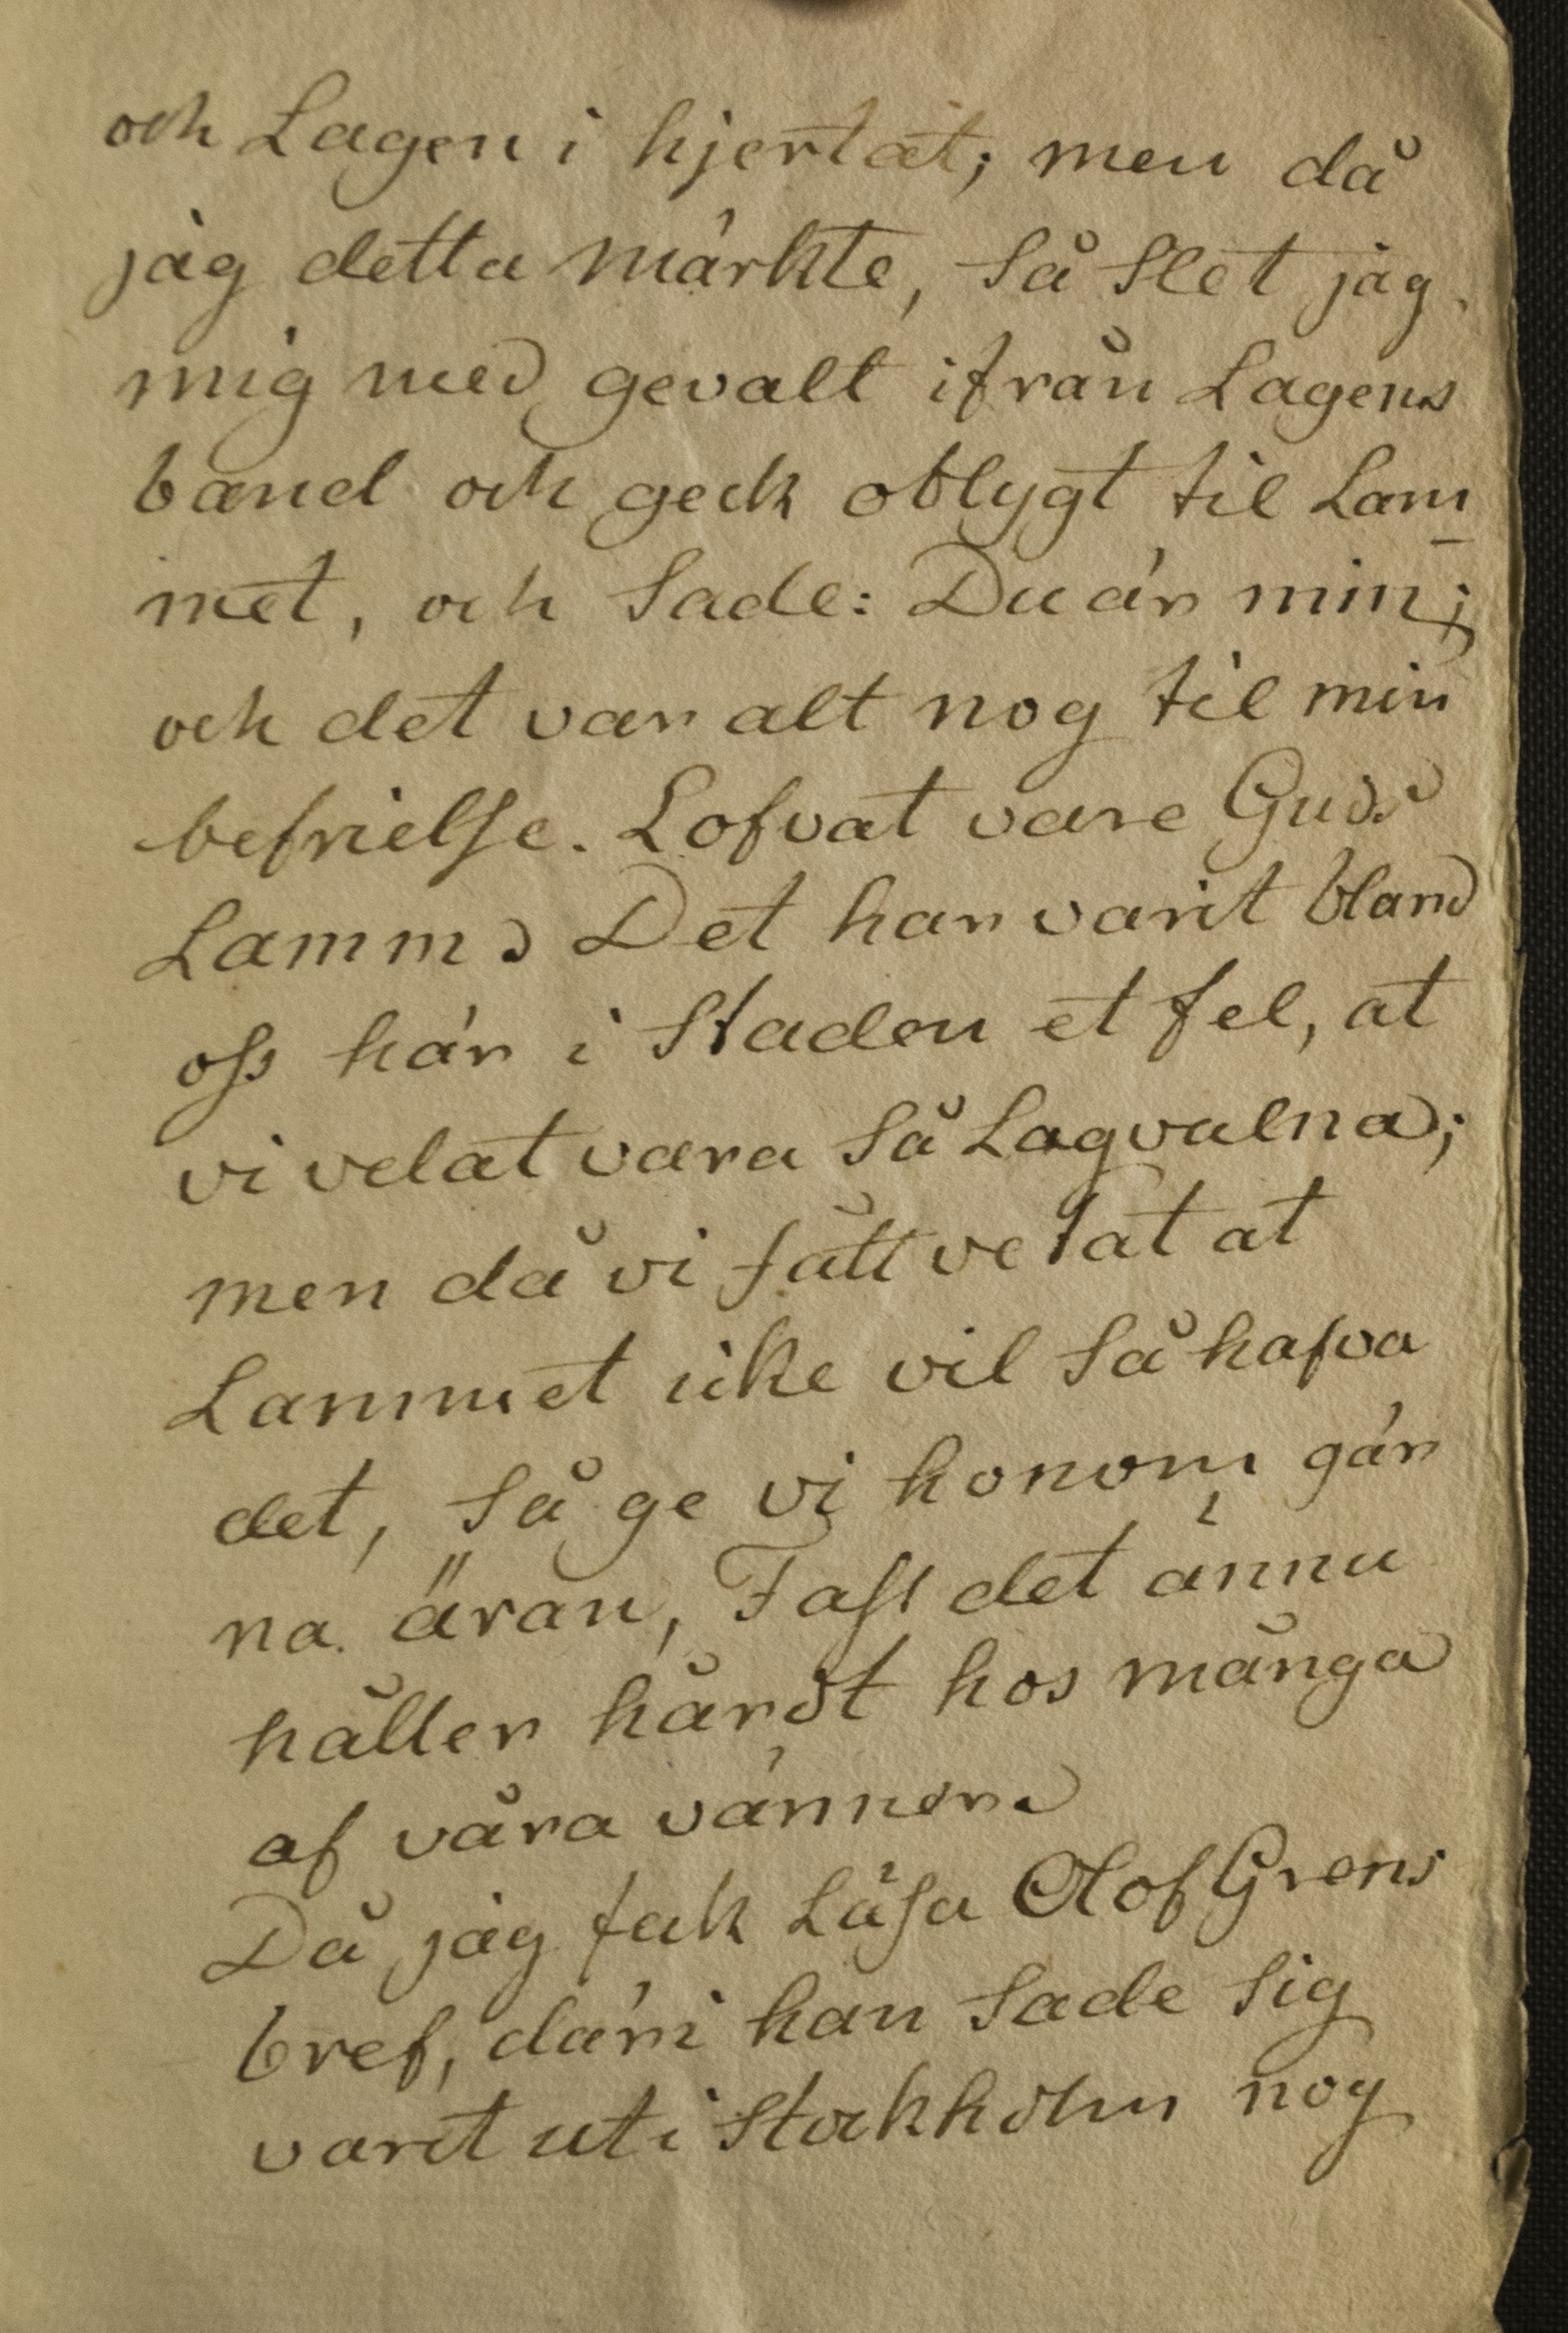 och Lagen i hjertat; men då
jag detta märkte, så slet jag
mig med gevalt ifrån Lagens
band och geck oblygt til Lam
met, och sade: Du är min;
och det var alt nog til min
befrielse. Lofvat vare Guds
Lamm. Det har varit bland
oss här i Staden et fel, at
vi velat vara så Lagvulna;
men då vi fått vetat at
Lammet icke vil så hafva
det, så ge vi honom gär
na äran, Fast det ännu
håller hårdt hos många
af våra vänner.
Då jag fick Läsa Olof Grens
bref, däri han sade sig
varit uti Stockholm nog